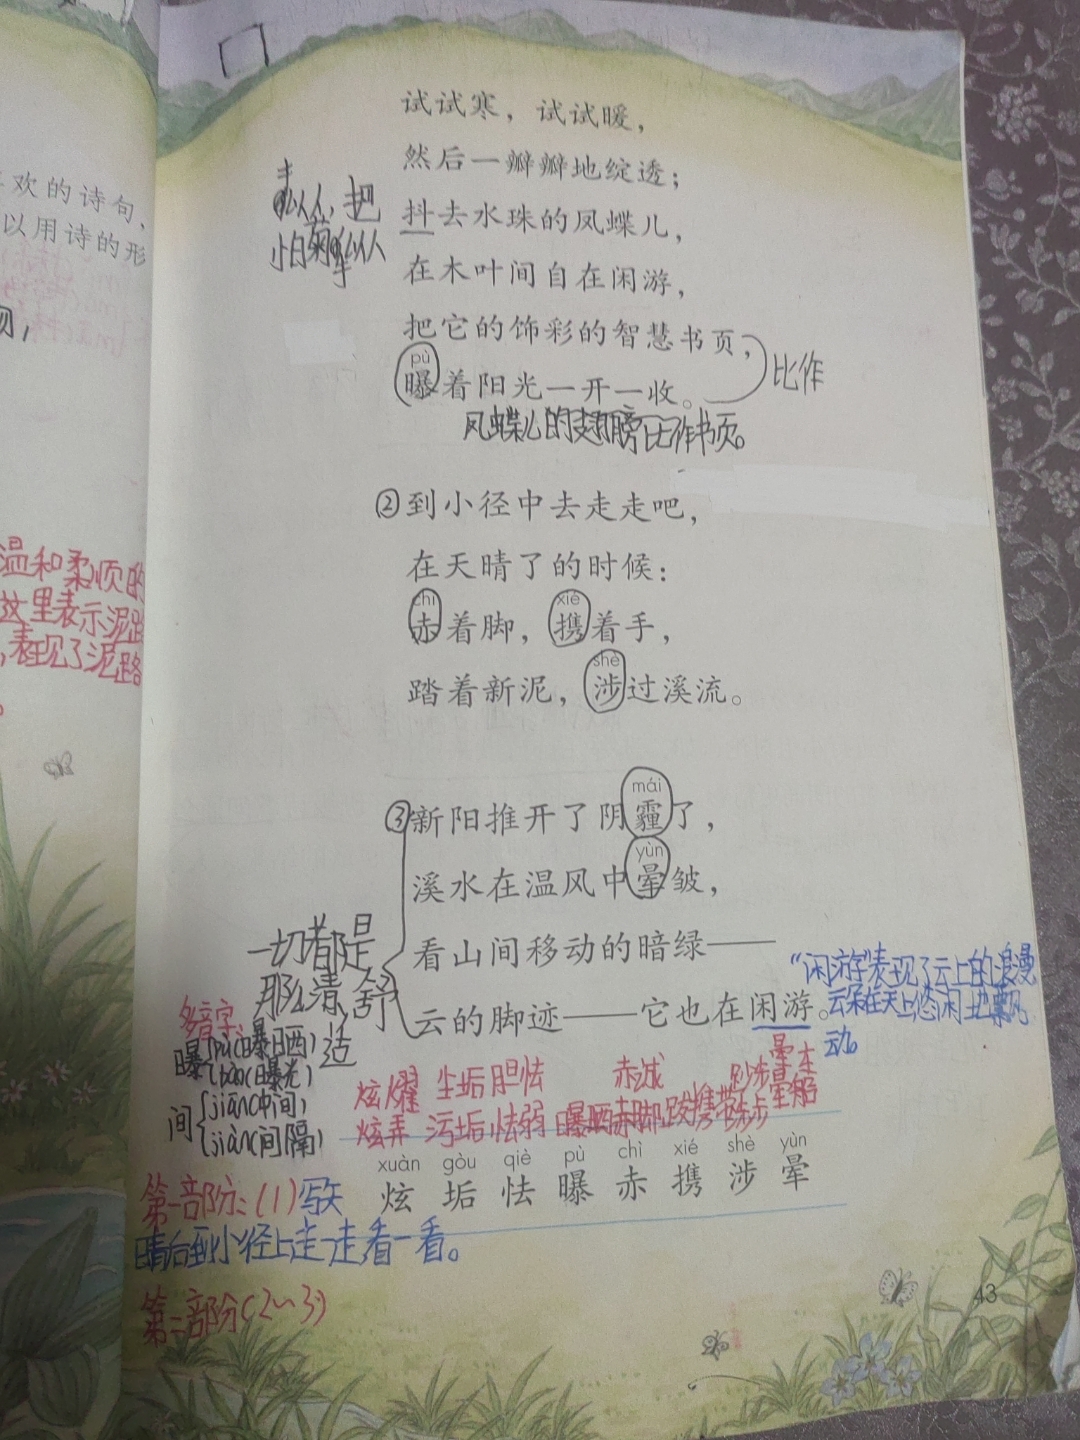 喜欢的诗句，
以用诗的形
物，
温和柔烦的
这里表示泥路
，表现了泥路
。
试试寒，试试暖，
然后一瓣瓣地绽透；
抖去水珠的凤蝶儿，
在木叶间自在闲游，
把它的饰彩的智慧书页，
pù
曝着阳光一开一收。
比作
凤蝶儿的翅膀比作书页。
②到小径中去走走吧，
在天晴了的时候：
chì xié
赤着脚，携着手，
shè
踏着新泥，涉过溪流。
mái
③新阳推开了阴霾了，
yùn
溪水在温风中晕皱，
看山间移动的暗绿——
云的脚迹——它也在闲游。
一切都是
那么清舒
适
"闲游"表现了云上的浪漫
云朵在天上悠闲
动。
多音字：
曝{pù(曝晒)
bào(曝光)
间{jiān(中间)
jiàn(间隔)
炫耀 尘垢 胆怯 赤诚
炫弄 污垢 怯弱 曝晒 赤脚
xuàn gòu qiè pù chì xié shè yùn
炫 垢 怯 曝 赤 携 涉 晕
第一部分：(1)写天
晴后到小径上走一走看一看。
第二部分(2~3)
43